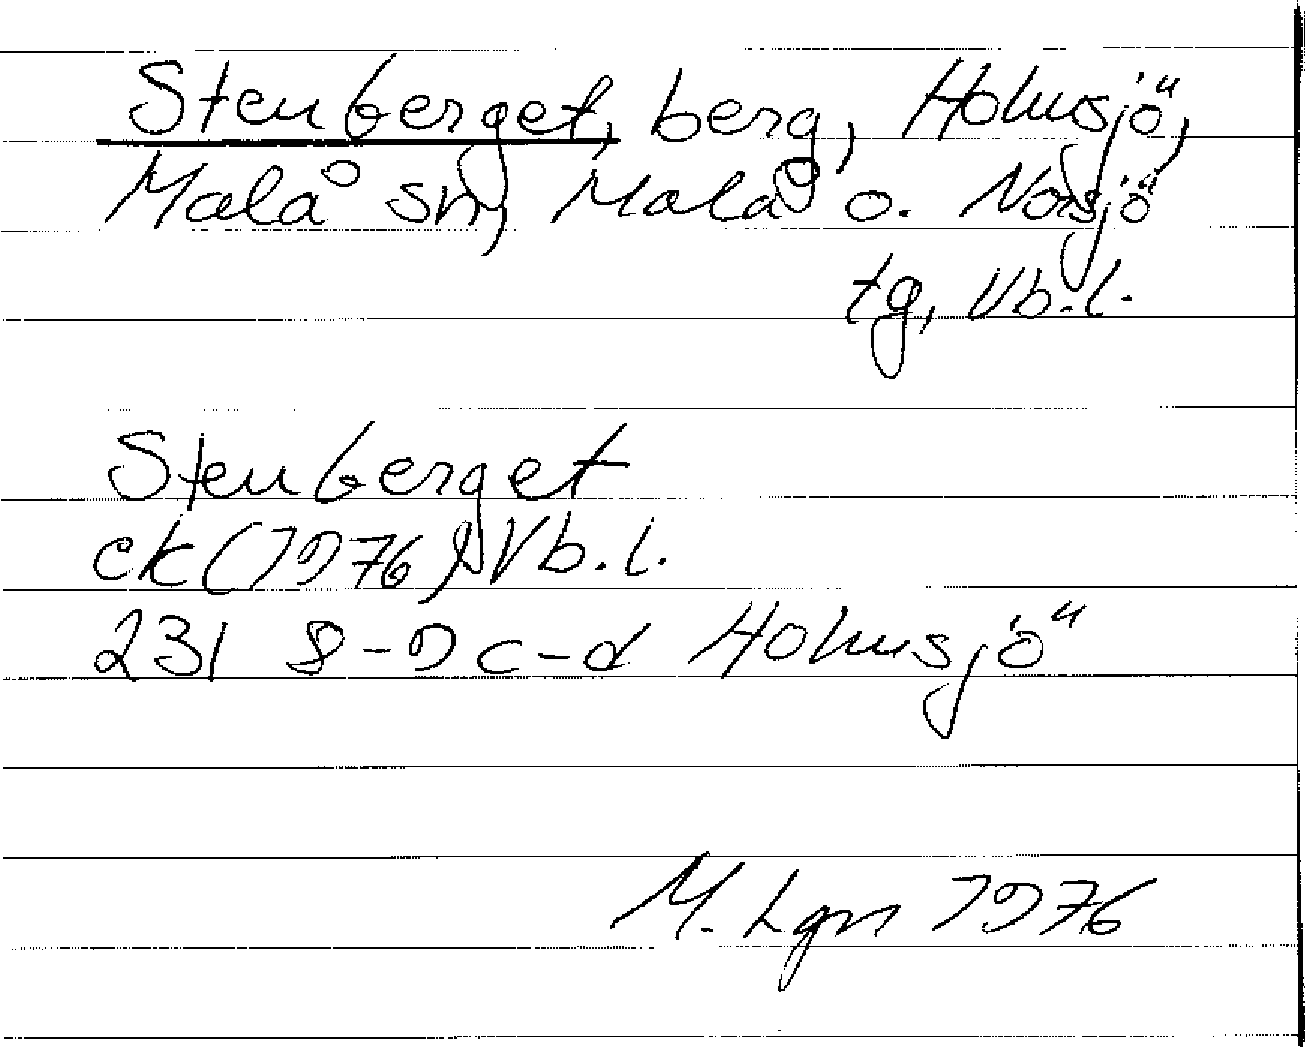 Stenberget, berg, Holmsjö,
Malå sn, Malå o. Norsjö
tg, Vb.l.
Stenberget
ek (1976) Vb.l.
231 8-9 c-d Holmsjö
M. Lgn 1976